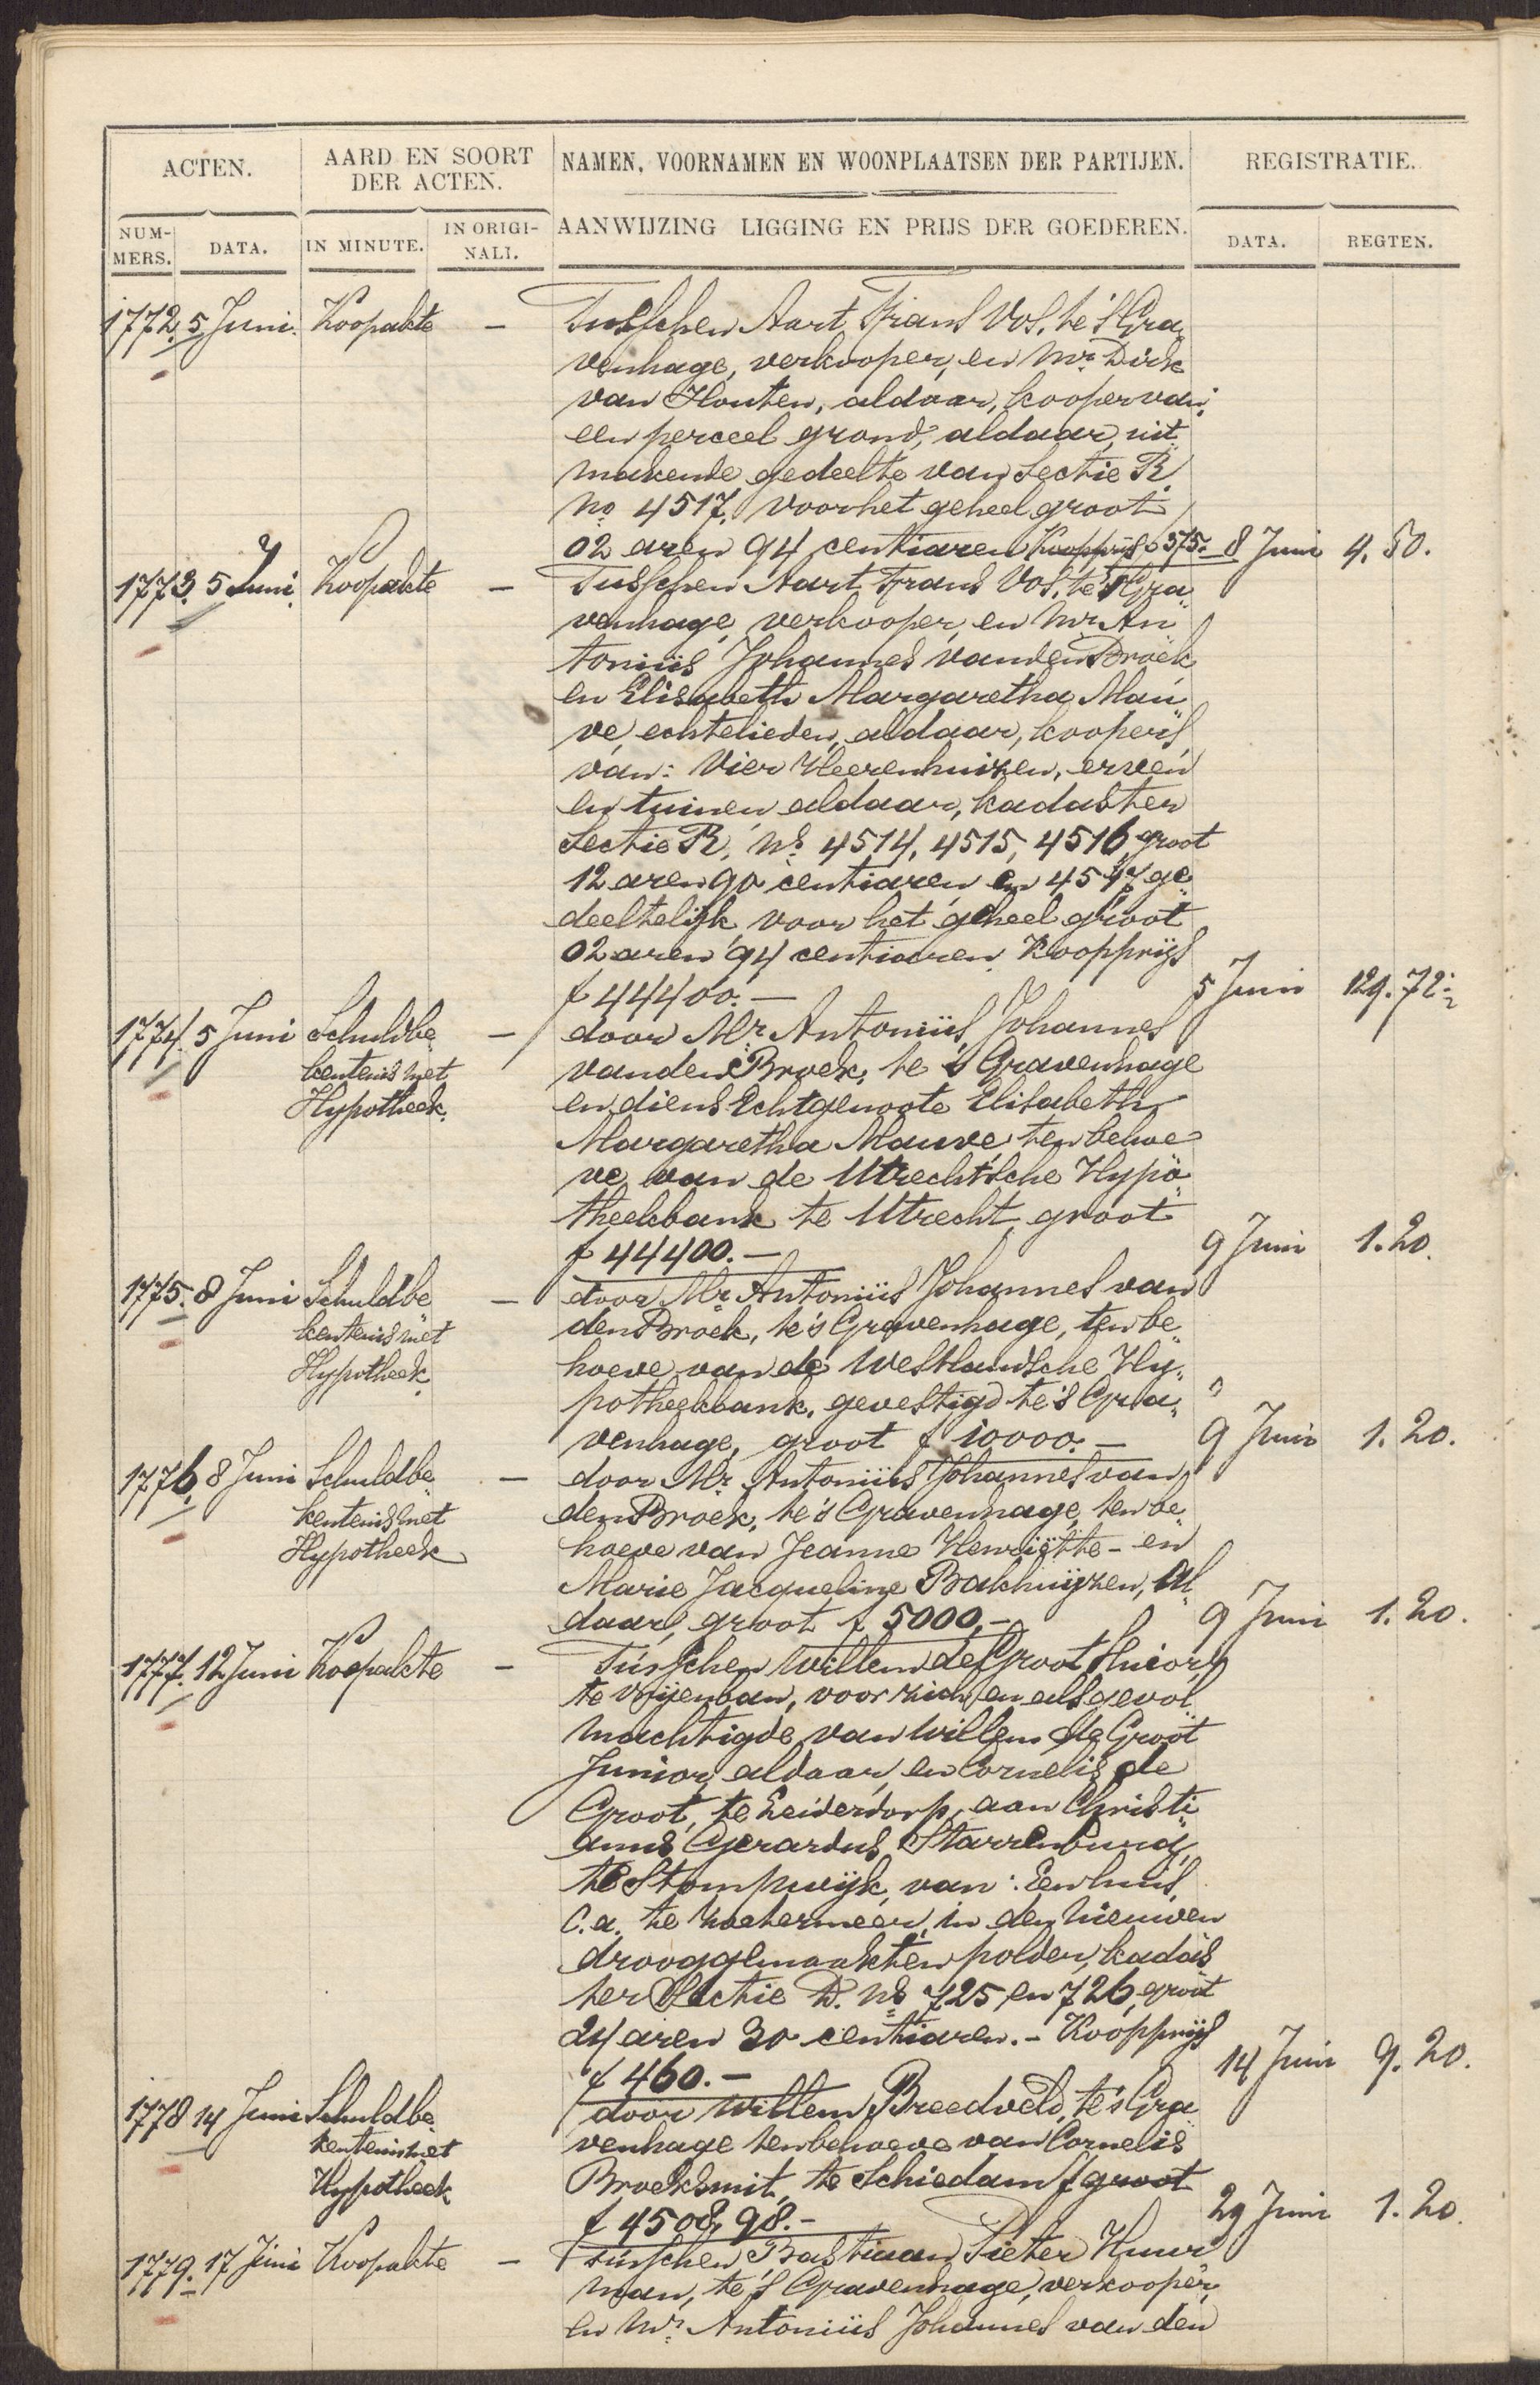 ACTEN.
AARD EN SOORT
DER ACTEN.
NAMEN, VOORNAMEN EN WOONPLAATSEN DER PARTIJEN.
AANWIJZING LIGGING EN PRIJS DER GOEDEREN.
REGISTRATIE.
NUM-
MERS.
DATA.
IN MINUTE.
IN ORIGI-
NALI.
DATA.
REGTEN.
1772. 5 Juni. Koopakte — Tusschen Aart Frans Vos, te 's Gra„
venhage, verkooper, en Mr. Dirk
van Houten, aldaar, kooper van:
een perceel grond, aldaar, uit„
makende gedeelte van Sectie R.
No 4517, voor het geheel groot
02 aren 94 centiaren Koopprijs f 375.- 8 Juni 4.50.
1773. 5 Juni. Koopakte — Tusschen Aart Frans Vos, te 's Gra„
venhage, verkooper, en Mr. An„
toniüs Johannes van den Broek
en Elisabeth Margaretha Mau„
ve, echtelieden, aldaar, koopers
van: Vier Heerenhuizen, erven
en tuinen, aldaar, kadaster
Sectie R, Ns. 4514, 4515, 4516, groot
12 aren 90 centiaren en 4517 ge„
deeltelijk, voor het geheel groot
02 aren 94 centiaren. Koopprijs
f 44400.— 5 Juni 129.72½
1774. 5 Juni Schuldbe„ — door Mr. Antoniüs Johannes
kentenis met van den Broek, te 's Gravenhage
Hypotheek. en diens Echtgenoote Elisabeth
Margaretha Mauve, ten behoe„
ve van de Utrechtsche Hypo„
theekbank te Utrecht, groot
f 44400.— 9 Juni 1.20.
1775. 8 Juni Schuldbe„ — door Mr. Antoniüs Johannes van
kentenis met den Broek, te 's Gravenhage, ten be„
Hypotheek. hoeve van de Westlandsche Hy„
potheekbank, gevestigd te 's Gra„
venhage, groot f 10000.— 9 Juni 1.20.
1776. 8 Juni Schuldbe„ — door Mr. Antoniüs Johannes van
kentenis met den Broek, te 's Gravenhage, ten be„
Hypotheek hoeve van Jeanne Henriëtte- en
Marie Jacqueline Bakhuijzen, al„
daar, groot f 5000.— 9 Juni 1.20.
1777. 12 Juni Koopakte — Tusschen Willem de Groot Senior,
te Vrijenban, voor zich en als gevol„
machtigde van Willem de Groot
Junior, aldaar, en Cornelis de
Groot, te Leiderdorp, aan Christi„
anus Gerardus Starrenburg,
te Stompwijk, van: Een huis
c.a. te Zoetermeer, in den Nieuwen
drooggemaakten polder, kadas„
ter Sectie D. Ns. 725 en 726, groot
24 aren 30 centiaren.- Koopprijs
f 460.— 14 Juni 9.20.
1778 14 Juni Schuldbe„ door Willem Breedveld, te 's Gra„
kentenis met venhage ten behoeve van Cornelis
Hypotheek Broeksmit, te Schiedam, groot
f 4508,98.— 29 Juni 1.20.
1779. 17 Juni Koopakte — Tusschen Bastiaan Pieter Huur„
man, te 's Gravenhage, verkooper,
en Mr. Antoniüs Johannes van den